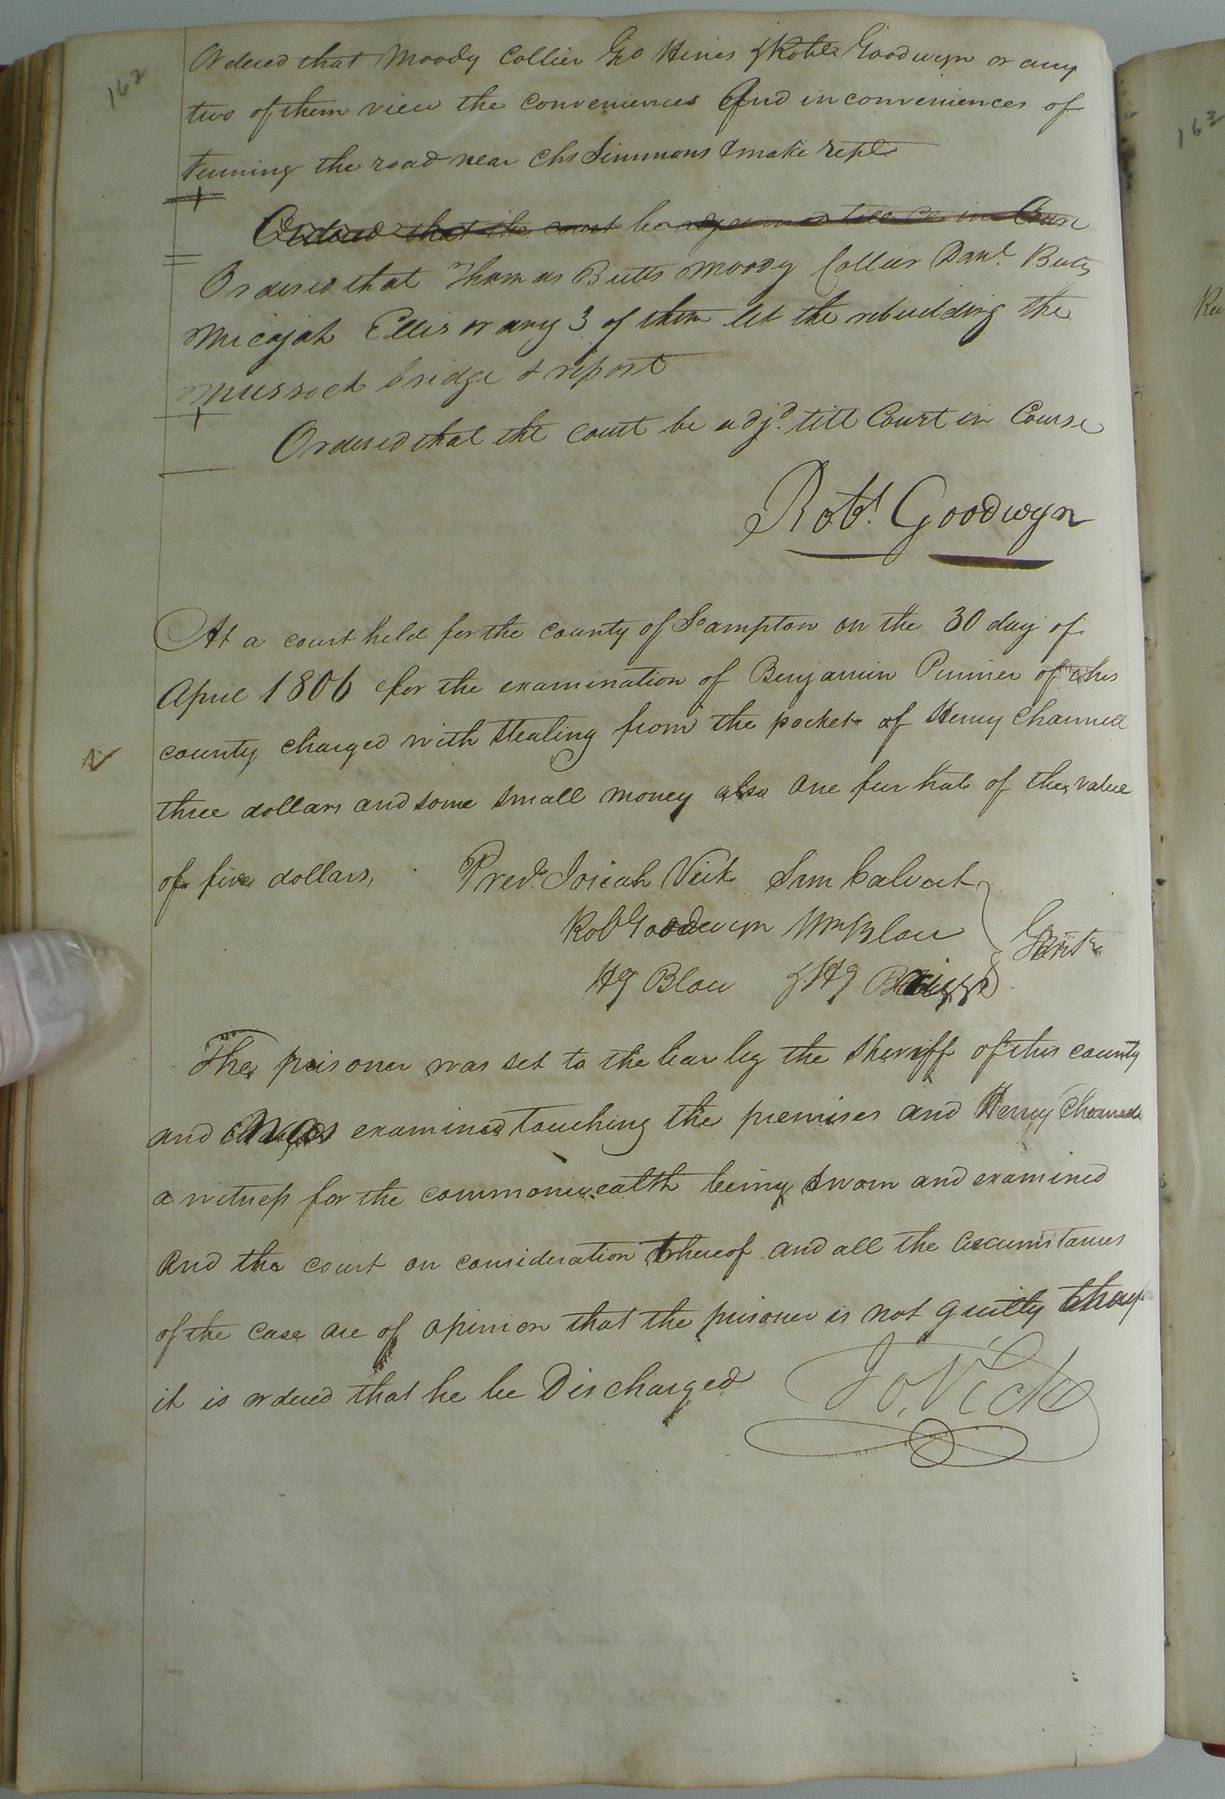 162
Ordered that Moody Collier Go Hines & Robt Goodwyn or any
two of them view the conveniences And inconveniences of
turning the road near Chs Simmons & make rept
Ordered that the court be adjourned till Co in Course
Ordered that Thomas Butts Moody Collier Danl. Butts
Micajah Ellis or any 3 of them let the rebuilding the
bridge & report
Ordered that the court be adjd. till Court in Course
Robt. Goodwyn
At a court held for the county of So ampton on the 30 day of
April 1806 for the examination of Benjamin Penner of this
county charged with stealing from the pocket of Henry Channell
three dollars and some small money also one fur hat of the value
of five dollars,
Presd. Josiah Vick Sam Calvert
Rob Goodwyn Wm Blow
Hy Blow & Hy Briggs
Gent
The prisoner was set to the bar by the Sheriff of this county
and was examined touching the premises and Henry Channell
a witness for the commonwealth being sworn and examined
And the court on consideration thereof and all the circumstances
of the case are of opinion that the prisoner is not guilty
it is ordered that he be Discharged
Jo. Vick
163